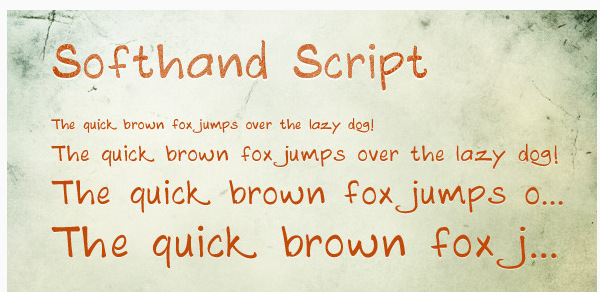 Softhand Script
The quick brown fox jumps over the lazy dog!
The quick brown fox jumps over the lazy dog!
The quick brown fox jumps o...
The quick brown fox j...